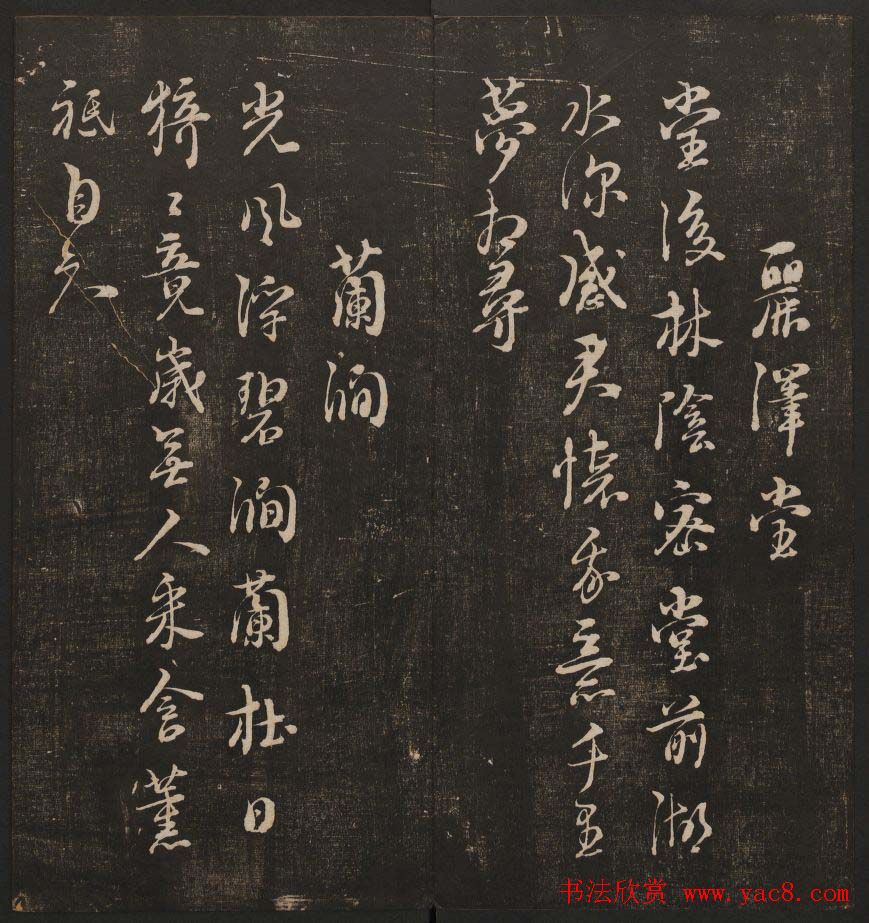 麗澤堂
堂後林陰密堂前湖
水深感君懷我意千里
夢相尋
蘭澗
光風浮碧澗蘭杜日
猗〻竟歲無人采含薰
祇自知
书法欣赏 www.yac8.com